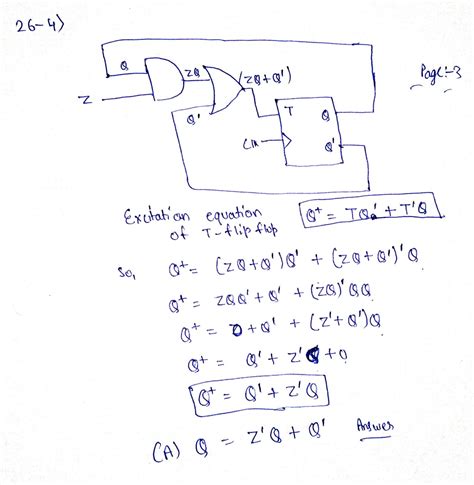 26-4)
Page:-3
Q ZQ (ZQ+Q')
Z
Q' T Q
Clk Q'
Excitation equation of T-flip flop
Q⁺ = TQ' + T'Q
So, Q⁺ = (ZQ+Q')Q' + (ZQ+Q')'Q
Q⁺ = ZQQ' + Q' + (ZQ)'QQ
Q⁺ = 0 + Q' + (Z'+Q')Q
Q⁺ = Q' + Z'Q + 0
Q⁺ = Q' + Z'Q
(A) Q = Z'Q + Q' Answer